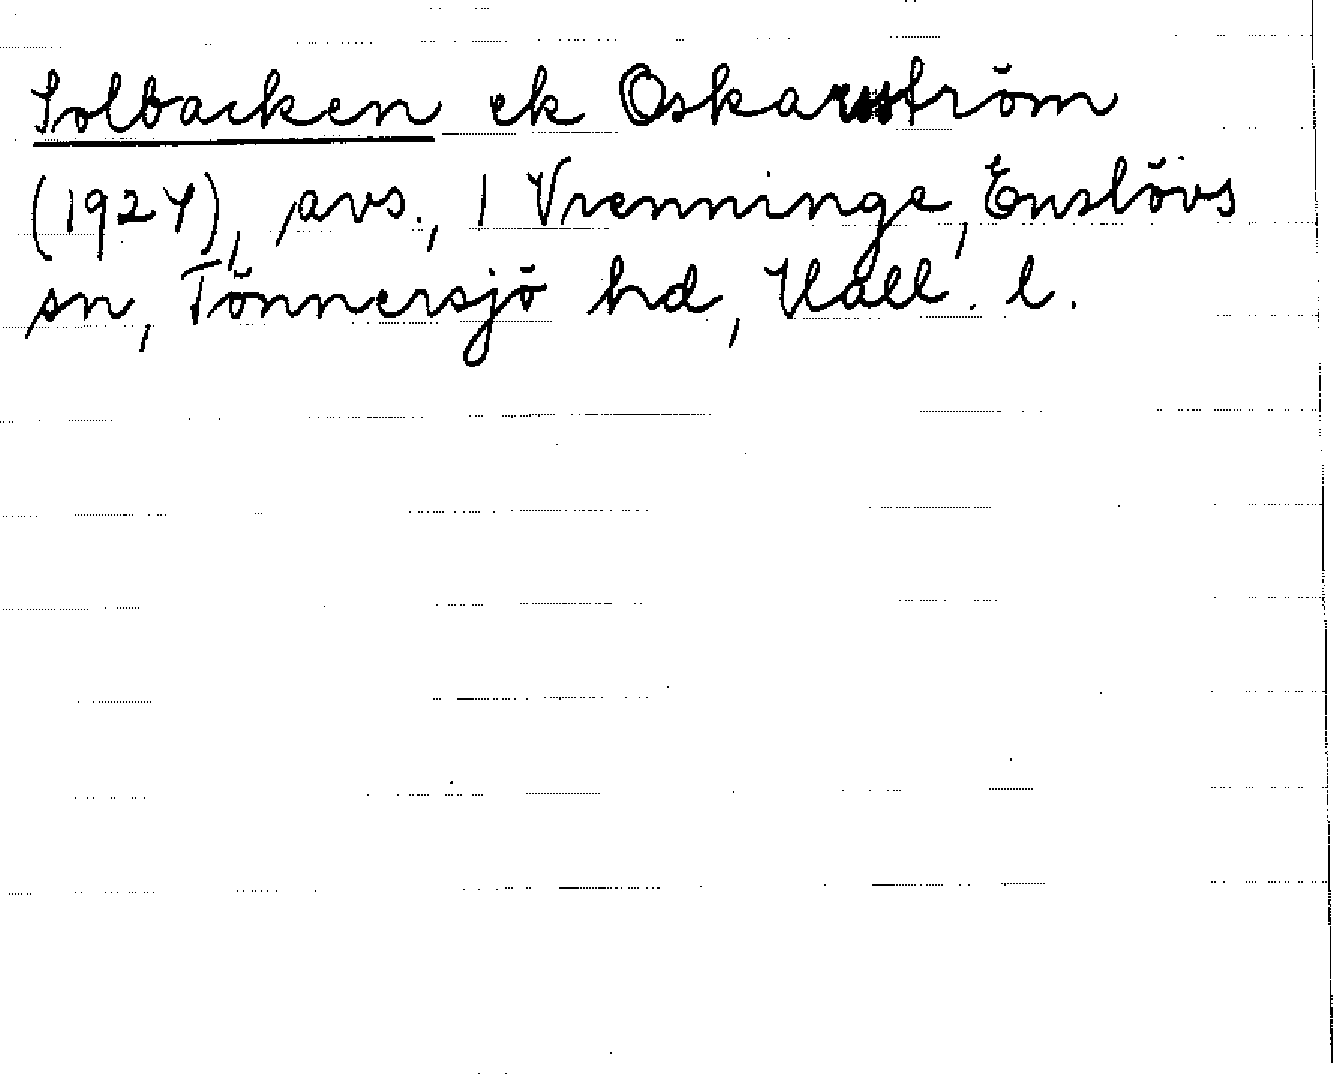 Solbacken ek Oskarström
(1924), avs., 1 Vrenninge, Enslövs
sn, Tönnersjö hd, Hall. l.